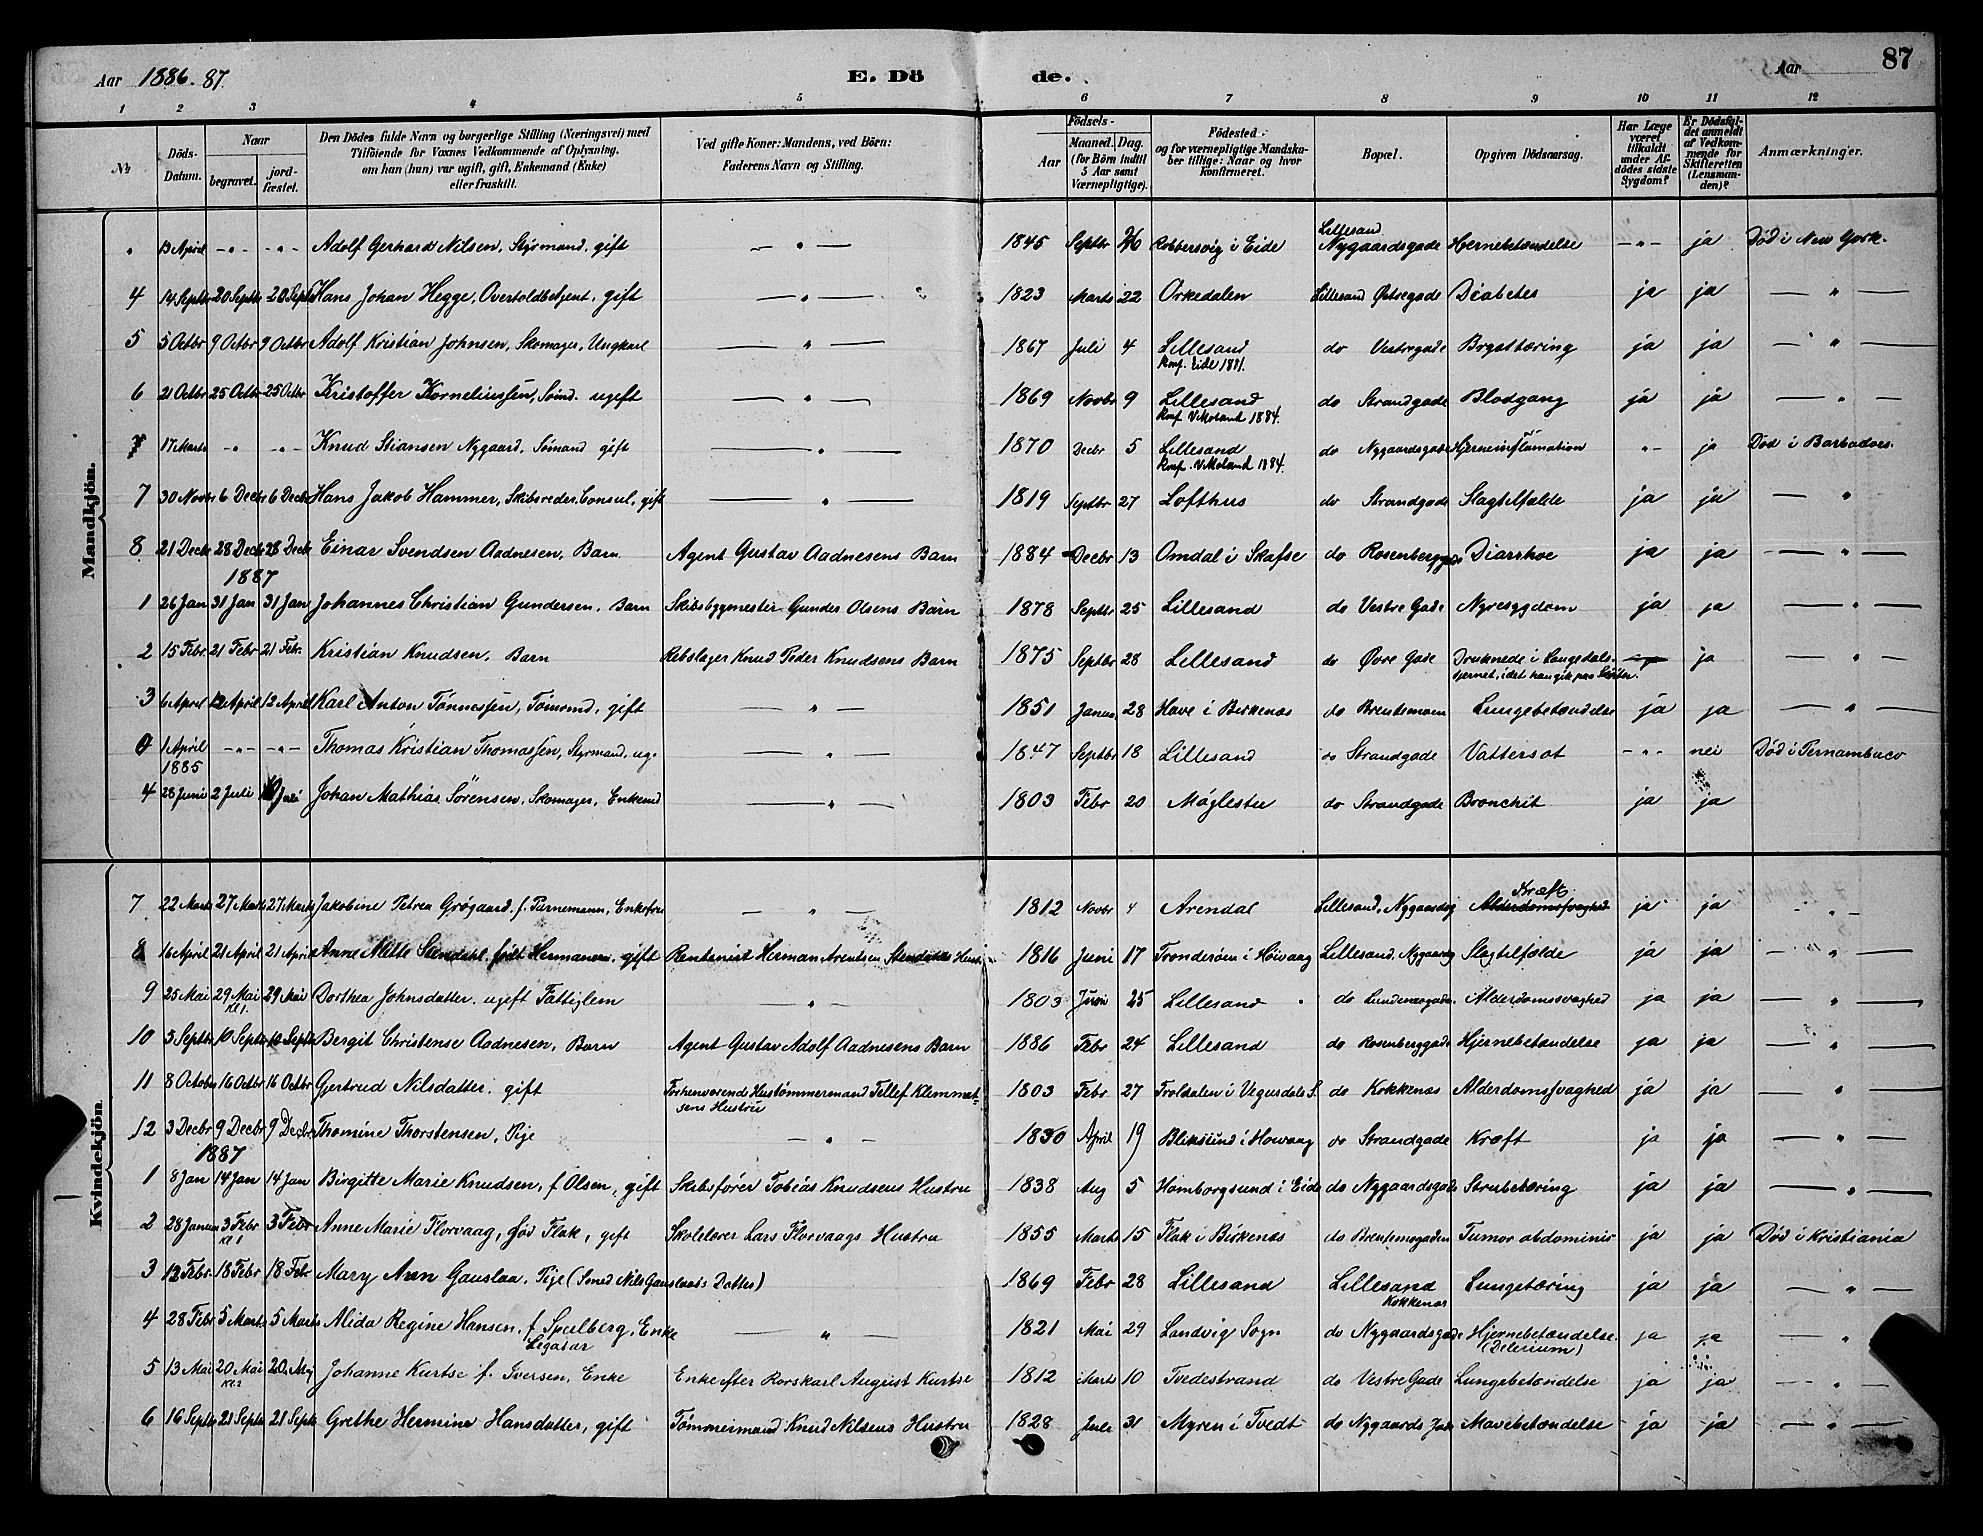 Aar 1886.87. E. Dö de. Aar 87
1 2 3 4 5 6 7 8 9 10 11 12
№ Döds-Datum. Naar begravet. jordfæstet. Den Dödes fulde Navn og borgerlige Stilling (Næringsvei) med Tilföiende for Voxnes Vedkommende af Oplysning, om han (hun) var ugift, gift, Enkemand (Enke) eller fraskilt. Ved gifte Koner: Mandens, ved Börn: Faderens Navn og Stilling. Födsels- Aar Maaned. Dag. (for Börn indtil 5 Aar samt Værnepligtige). Födested og for værnepligtige Mandskaber tillige: Naar og hvor konfirmeret. Bopæl. Opgiven Dödsaarsag. Har Læge været tilkaldt under Afdödes sidste Sygdom? Er Dödsfaldet anmeldt af Vedkommende for Skifteretten (Lensmanden)? Anmærkninger.
Mandkjön.
" 13 April -"- -"- Adolf Gerhard Nilsen, Styrmand, gift — " — 1845 Septbr Robbersvig i Eide Lillesand Nygaardsgade Hjernebetændelse -"- ja Död i New York.
4 14 Septbr 20 Septbr 20 Septbr Hans Johan Hegge, Overtoldbetjent, gift — " — 1823 Marts 22 Orkedalen Lillesand Østregade Diabetes ja ja — " —
5 5 Octbr 9 Octbr 9 Octbr Adolf Kristian Johnsen, Skomager, Ungkarl — " — 1867 Juli 4 Lillesand do Vestregade Brysttæring ja ja — " —
Konf. Eide 1881.
6 21 Octbr 25 Octbr 25 Octbr Kristoffer Korneliussen, Sömd. ugift — " — 1869 Novbr 9 Lillesand do Strandgade Blodgang ja ja — " —
Konf. V.Moland 1884.
17 Marts -"- -"- Knud Stiansen Nygaard, Sömand gift — " — 1870 Decbr 5 Lillesand do Nygaardsgade Hjerneinflamation "- ja Död i Barbadoes.
Konf. V.Moland 1884.
7 30 Novbr 6 Decbr 6 Decbr Hans Jakob Hammer, Skibsreder, Consul, gift — " — 1819 Septbr 27 Lofthus do Strandgade Slagtilfælde ja ja — "
8 21 Decbr 28 Decbr 28 Decbr Einar Svendsen Aadnesen, Barn Agent Gustav Aadnesens Barn 1884 Decbr 13 Omdal i Skafse do Rosenberggade Diarrhoe ja ja — " —
1887
1 26 Jan 31 Jan 31 Jan Johannes Christian Gundersen, Barn Skibsbygmester Gunder Olsens Barn 1878 Septbr 25 Lillesand do Vestre Gade Nyresygdom ja ja — " —
2 15 Febr. 21 Febr 21 Febr. Kristian Knudsen, Barn Rebslager Knud Peder Knudsens Barn 1875 Septbr 28 Lillesand do Øvre Gade Druknede i Langedals- ja — " —
tjernet, idet han gik paa Skøiter.
3 6 April 12 April 12 April Karl Anton Tönnessen, Tömmd, gift — " — 1851 Januar 28 Have i Birkenæs do Brentemoen Lungebetændelse ja ja — " —
0 1 April -"- -"- Thomas Kristian Thomassen, Styrmand, ug. — " — 1847 Septbr 18 Lillesand do Strandgade Vattersot -"- nei Död i Pernambuco
1885
4 28 Juni 2 Juli Juli Johan Mathias Sörensen, Skomager, Enkemd — " — 1803 Febr 20 Möglestu do Strandgade Bronchit ja ja
Kvindekjön
7 22 Marts 27 Marts 27 Marts Jakobine Petrea Grögaard, f. Parnemann, Enkefrue — " — 1812 Novbr 4 Arendal Lillesand, Nygaardsg Kræft Alderdomssvaghed ja ja - " -
8 16 April 21 April 21 April Anne Mette Stendahl födt Hermansen, gift Rentenist Herman Arentsen Stendahls Hustru 1816 Juni 17 Tronderöen i Höivaag Lillesand, Nygaardsg Slagtilfælde ja ja — " —
9 25 Mai 29 Mai 29 Mai Dorthea Johnsdatter ugift Fattiglem — " - 1803 Juni 25 Lillesand do Lundemogaden Alderdomssvaghed ja ja — " —
Kl 1.
10 5 Septbr 10 Septbr 10 Septbr Bergit Christense Aadnesen, Barn Agent Gustav Adolf Aadnesens Barn 1886 Febr 24 Lillesand do Rosenberggade Hjernebetændelse ja ja — " —
11 8 October 16 Octbr 16 Octbr Gjertrud Nilsdatter, gift Forhenværende Hustömmermand Tellef Klemmet- 1803 Febr 27 Troldalen i Vegusdals S. do Kokkenæs Alderdomssvaghed ja ja — " —
sens Hustru
12 3 Decbr 9 Decbr 9 Decbr Thomine Thorstensen, Pige — " — 1830 April 19 Bliksund i Höivaag do Strandgade Kræft ja ja — " —
1887
1 8 Jan 14 Jan 14 Jan Birgitte Marie Knudsen, f Olsen, gift Skibsförer Tobias Knudsens Hustru 1838 Aug 5 Homborgsund i Eide do Nygaardsgade Strubetæring ja ja — " —
2 28 Januar 3 Febr 3 Febr Anne Marie Florvaag, föd Flak, gift Skolelærer Lars Florvaags Hustru 1855 Marts 15 Flak i Birkenæs do Brentemogaden Tumor abdominis ja ja Död i Kristiania
Kl 1
3 12 Febr 18 Febr 18 Febr Mary Ann Gauslaa, Pige (Smed Nils Gauslaas Datter) 1869 Febr 28 Lillesand Lillesand Lungetæring ja ja — " —
Kokkenæs
4 28 Febr 5 Marts 5 Marts Alida Regine Hansen, f Spelberg, Enke — " — 1821 Mai 29 Landvig Sogn do Nygaardsgade Hjernebetændelse. ja ja — "
(Delerium)
5 13 Mai 20 Mai 20 Maj Johanne Kurtse f. Iversen, Enke Enke efter Rorskarl August Kurtse 1812 Marts 10 Tvedestrand do Vestre Gade Lungebetændelse ja ja — " —
Kl 2
6 16 Septbr 21 Septbr 21 Septbr Grethe Hermine Hansdatter, gift Tömmermand Knud Nilsens Hustru 1828 Juli 31 Myren i Tvedt do Nygaards Mavebetændelse ja ja — " —